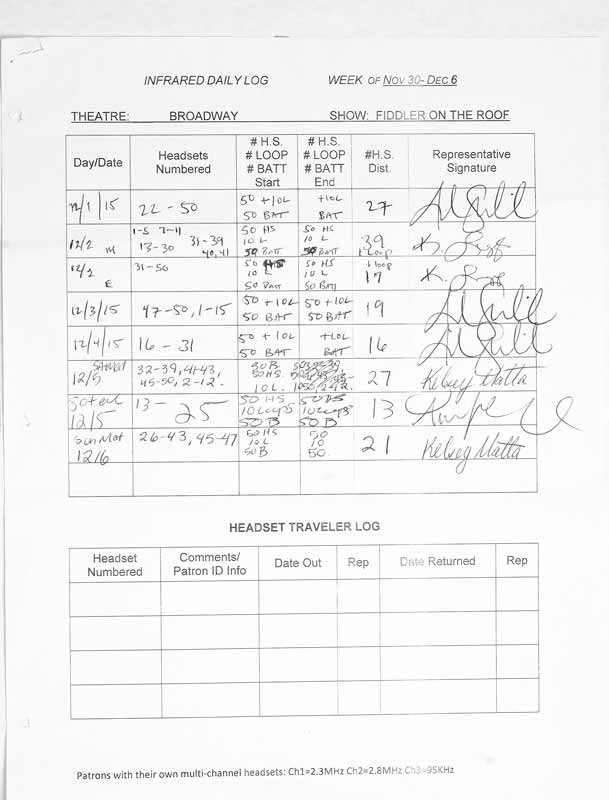 INFRARED DAILY LOG WEEK OF NOV 30- DEC 6
THEATRE: BROADWAY SHOW: FIDDLER ON THE ROOF
Day/Date Headsets Numbered # H.S. # LOOP # BATT Start # H.S. # LOOP # BATT End #H.S. Dist. Representative Signature
12/1/15 22-50 50 + 10L 50 BAT +10L BAT 27
12/2 M 1-5 7-11 13-30 31-39 40,41 50 HS 10 L 50 BATT 50 HS 10 L 50 BATT 39 1 Loop
12/2 E 31-50 50 HS 10 L 50 BATT 50 HS 10 L 50 BATT 1 loop 17
12/3/15 47-50, 1-15 50 + 10L 50 BAT 50 + 10L 50 BAT 19
12/4/15 16-31 50 + 10L 50 BAT +10L BAT 16
12/5 SAT MAT 32-39, 41-43, 45-50, 2-12. 50B. 50HS. 10L. 27 Kelsey Matta
Sat eve 12/5 13-25 50 HS 10 Loops 50 B 50 HS 10 Loops 50 B 13
Sun Mat 12/6 26-43, 45-47 50 HS 10 L 50 B 50 10 50. 21 Kelsey Matta
HEADSET TRAVELER LOG
Headset Numbered Comments/ Patron ID Info Date Out Rep Date Returned Rep
Patrons with their own multi-channel headsets: Ch1=2.3MHz Ch2=2.8MHz Ch3=95KHz